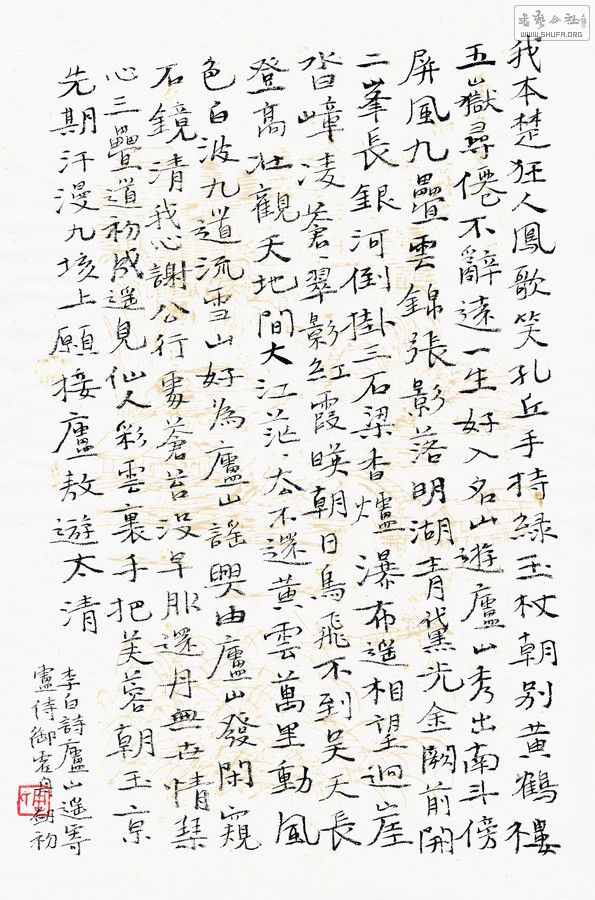 书艺公社
WWW.SHUFA.ORG
我本楚狂人鳳歌笑孔丘手持綠玉杖朝別黃鶴樓
五嶽尋僊不辭遠一生好入名山遊廬山秀出南斗傍
屏風九疊雲錦張影落明湖青黛光金闕前開
二峯長銀河倒掛三石梁香爐瀑布遙相望迴崖
沓嶂凌蒼〻翠影紅霞暎朝日鳥飛不到吳天長
登高壯觀天地間大江茫〻去不還黃雲萬里動風
色白波九道流雪山好為廬山謠興由廬山發閑窺
石鏡清我心謝公行處蒼苔沒早服還丹無世情琹
心三疊道初成遙見仙人彩雲裏手把芙蓉朝玉京
先期汗漫九垓上願接廬敖遊太清
李白詩廬山遥寄
盧侍御虛舟初